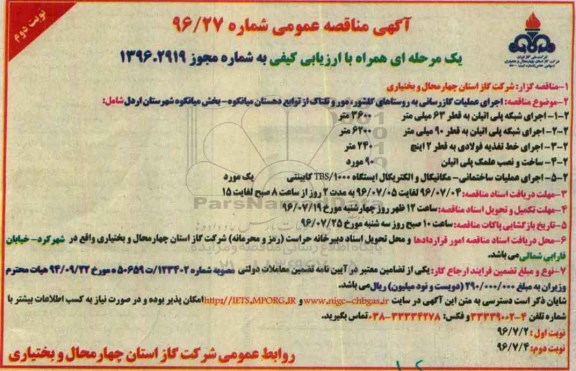 نوبت دوم
آگهی مناقصه عمومی شماره ۹۶/۲۷
یک مرحله ای همراه با ارزیابی کیفی به شماره مجوز ۱۳۹۶.۲۹۱۹
۱-مناقصه گزار: شرکت گاز استان چهارمحال و بختیاری
۲-موضوع مناقصه: اجرای عملیات گازرسانی به روستاهای گلشور، مور و تلتاک از توابع دهستان میانکوه- بخش میانکوه شهرستان اردل شامل:
۲-۱-اجرای شبکه پلی اتیلن به قطر ۶۳ میلی متر ۳۶۰۰ متر
۲-۲-اجرای شبکه پلی اتیلن به قطر ۹۰ میلی متر ۶۲۰۰ متر
۲-۳-اجرای خط تغذیه فولادی به قطر ۲ اینچ ۲۴۰ متر
۲-۴-ساخت و نصب علمک پلی اتیلن ۹۰ مورد
۲-۵-اجرای عملیات ساختمانی- مکانیکال و الکتریکال ایستگاه TBS/۱۰۰۰ کابینتی یک مورد
۳-مهلت دریافت اسناد مناقصه: ۹۶/۰۷/۰۴ لغایت ۹۶/۰۷/۰۵ به مدت ۲ روز از ساعت ۸ صبح لغایت ۱۵
۴-مهلت تکمیل و تحویل اسناد مناقصه: ساعت ۱۲ ظهر روز چهارشنبه مورخ ۹۶/۰۷/۱۹
۵-تاریخ بازگشایی پاکات مناقصه: ساعت ۱۰ صبح روز سه شنبه مورخ ۹۶/۰۷/۲۵
۶-محل دریافت اسناد مناقصه امور قراردادها و محل تحویل اسناد دبیرخانه حراست (رمز و محرمانه) شرکت گاز استان چهارمحال و بختیاری واقع در شهرکرد- خیابان
فارابی شمالی می باشد.
۷-نوع و مبلغ تضمین فرایند ارجاع کار: یکی از تضامین معتبر در آیین نامه تضمین معاملات دولتی مصوبه شماره ۱۲۳۴۰۲/ت۵۰۶۵۹ ه مورخ ۹۴/۰۹/۲۲ هیات محترم
وزیران به مبلغ ۲۹۰/۰۰۰/۰۰۰ (دویست و نود میلیون) ریال می باشد.
شایان ذکر است دسترسی به متن این آگهی در سایت www.nigc-chbgas.ir و http://IETS.MPORG.IR امکان پذیر بوده و در صورت نیاز به کسب اطلاعات بیشتر با
شماره تلفن ۴-۳۳۳۳۹۰۰۲ و فکس: ۳۳۳۳۴۲۷۸-۰۳۸ تماس بگیرید.
نوبت اول: ۹۶/۷/۲
نوبت دوم: ۹۶/۷/۴
روابط عمومی شرکت گاز استان چهارمحال و بختیاری